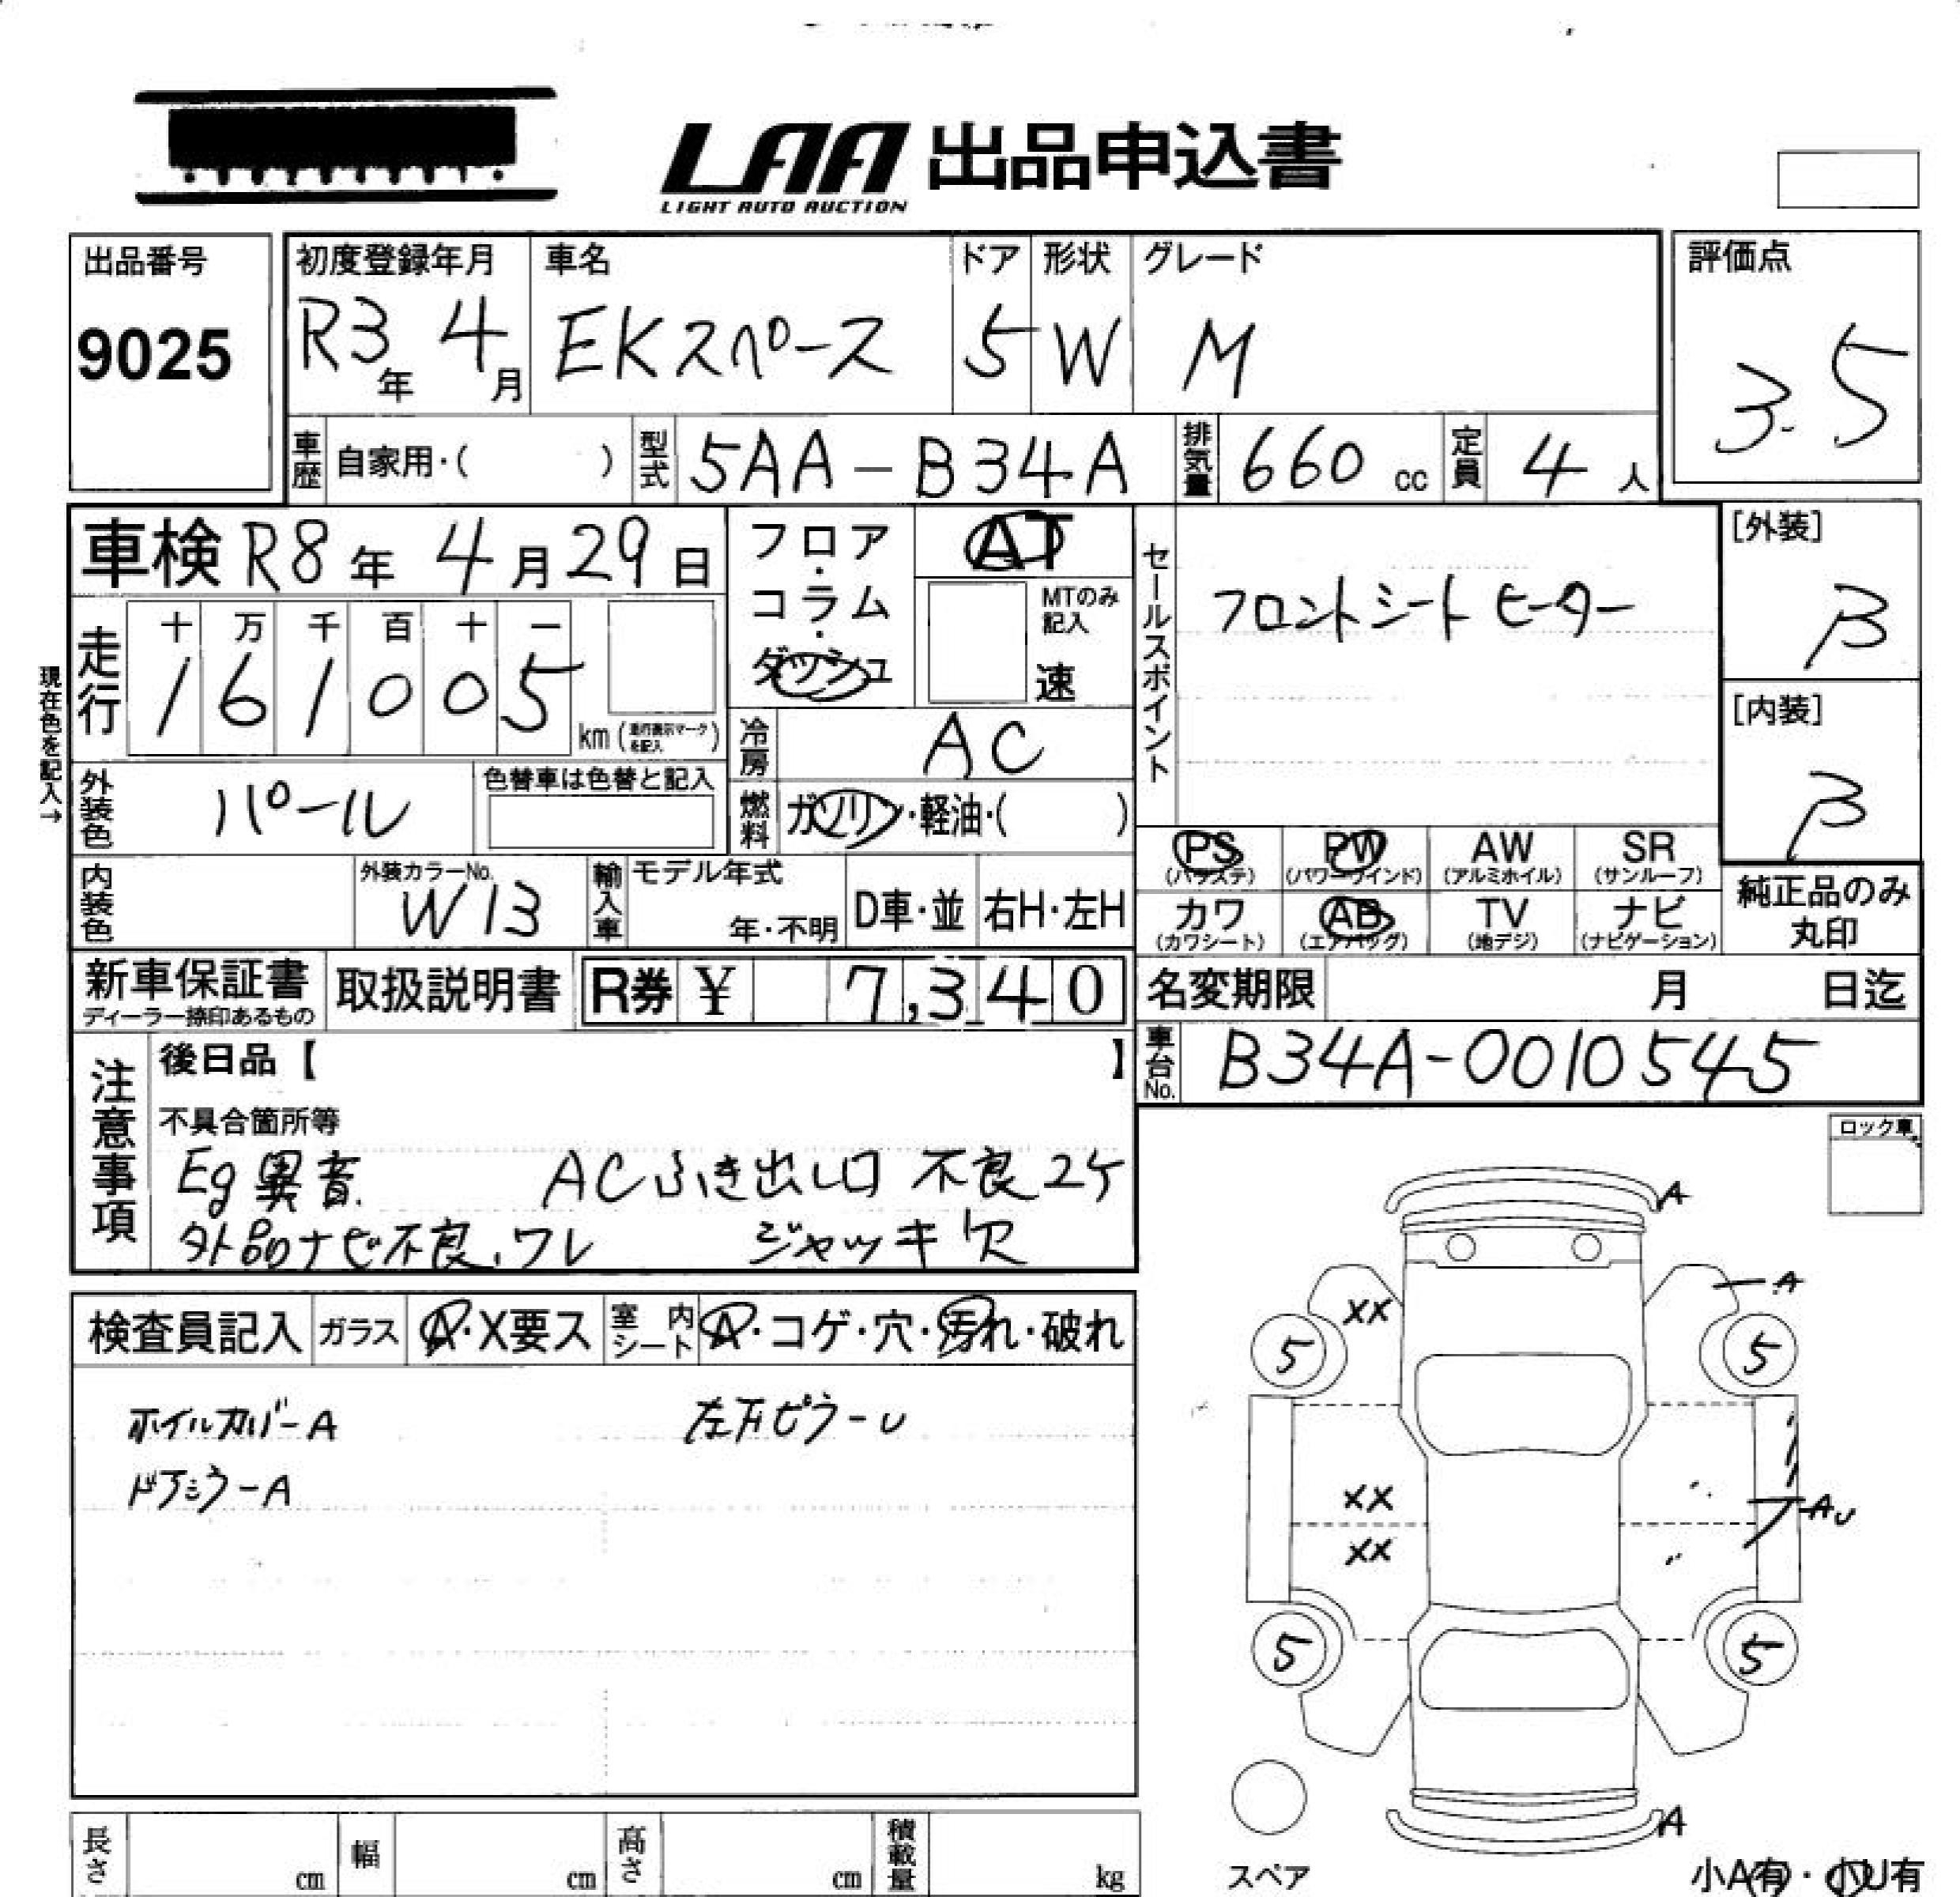 LAA 出品申込書
LIGHT AUTO AUCTION
出品番号
9025
初度登録年月
R3年 4月
車名
EKスペース
ドア
5
形状
W
グレード
M
評価点
3.5
車歴 自家用・( )
型式 5AA-B34A
排気量 660 cc
定員 4 人
車検 R8年 4月29日
フロア・コラム・ダッシュ
AT
MTのみ記入
速
セールスポイント
フロントシートヒーター
[外装]
β
[内装]
β
現在色を記入→
走行
十 万 千 百 十 一
1 6 1 0 0 5
km (走行表示マークを記入)
冷房 AC
外装色 パール
色替車は色替と記入
燃料 ガソリン・軽油・( )
PS (パワステ)
PW (パワーウインド)
AW (アルミホイル)
SR (サンルーフ)
カワ (カワシート)
AB (エアバッグ)
TV (地デジ)
ナビ (ナビゲーション)
純正品のみ丸印
内装色
外装カラーNo.
W13
輸入車
モデル年式
年・不明
D車・並
右H・左H
新車保証書
ディーラー捺印あるもの
取扱説明書
R券 ¥ 7,340
名変期限 月 日迄
車台No. B34A-0010545
注意事項
後日品【 】
不具合箇所等
Eg異音. ACふき出し口 不良2ケ
外品ナビ不良、ワレ ジャッキ欠
ロック車
検査員記入
ガラス A・X要ス
室内シート A・コゲ・穴・汚れ・破れ
ホイルカバーA 左FピラーU
ドアミラーA
A
A
XX
5
5
XX
AU
XX
5
5
A
スペア
小A有・小U有
長さ cm
幅 cm
高さ cm
積載量 kg